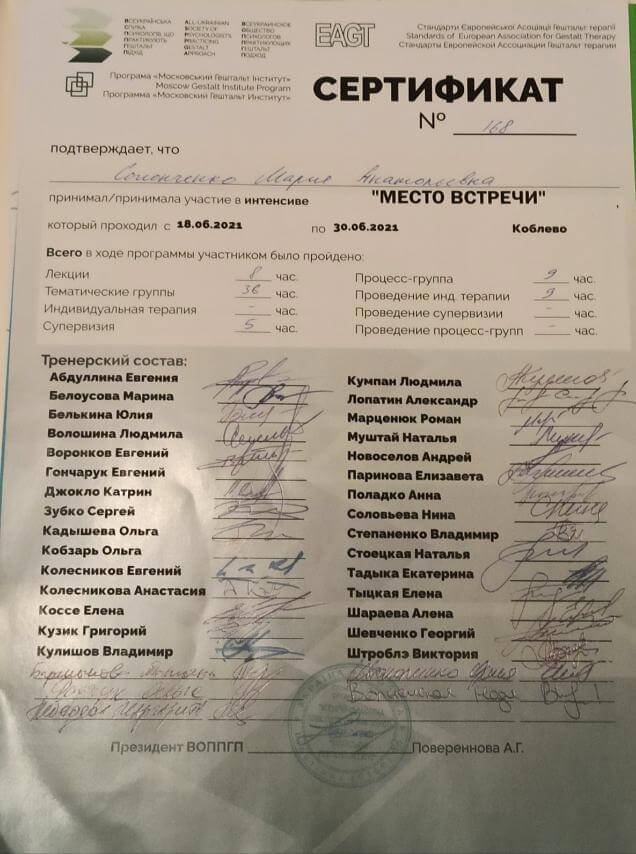 ВСЕУКРАЇНСЬКА СПІЛКА ПСИХОЛОГІВ, ЩО ПРАКТИКУЮТЬ ГЕШТАЛЬТ ПІДХІД
ALL-UKRAINIAN SOCIETY OF PSYCHOLOGISTS PRACTICING GESTALT APPROACH
ВСЕУКРАИНСКОЕ ОБЩЕСТВО ПСИХОЛОГОВ ПРАКТИКУЮЩИХ ГЕШТАЛЬТ ПОДХОД
EAGT
Стандарти Європейської Асоціації Гештальт терапії
Standards of European Association for Gestalt Therapy
Стандарты Европейской Ассоциации Гештальт терапии
Програма «Московський Гештальт Інститут»
Moscow Gestalt Institute Program
Программа «Московский Гештальт Институт»
СЕРТИФИКАТ
№ 168
подтверждает, что
Мария Анатольевна
принимал/принимала участие в интенсиве "МЕСТО ВСТРЕЧИ"
который проходил с 18.06.2021 по 30.06.2021 Коблево
Всего в ходе программы участником было пройдено:
Лекции 8 час. Процесс-группа 9 час.
Тематические группы 36 час. Проведение инд. терапии 9 час.
Индивидуальная терапия - час. Проведение супервизии - час.
Супервизия 5 час. Проведение процесс-групп - час.
Тренерский состав:
Абдуллина Евгения
Белоусова Марина
Белькина Юлия
Волошина Людмила
Воронков Евгений
Гончарук Евгений
Джокло Катрин
Зубко Сергей
Кадышева Ольга
Кобзарь Ольга
Колесников Евгений
Колесникова Анастасия
Коссе Елена
Кузик Григорий
Кулишов Владимир
Кумпан Людмила
Лопатин Александр
Марценюк Роман
Муштай Наталья
Новоселов Андрей
Паринова Елизавета
Поладко Анна
Соловьева Нина
Степаненко Владимир
Стоецкая Наталья
Тадыка Екатерина
Тыцкая Елена
Шараева Алена
Шевченко Георгий
Штроблэ Виктория
Президент ВОППГП Повереннова А.Г.